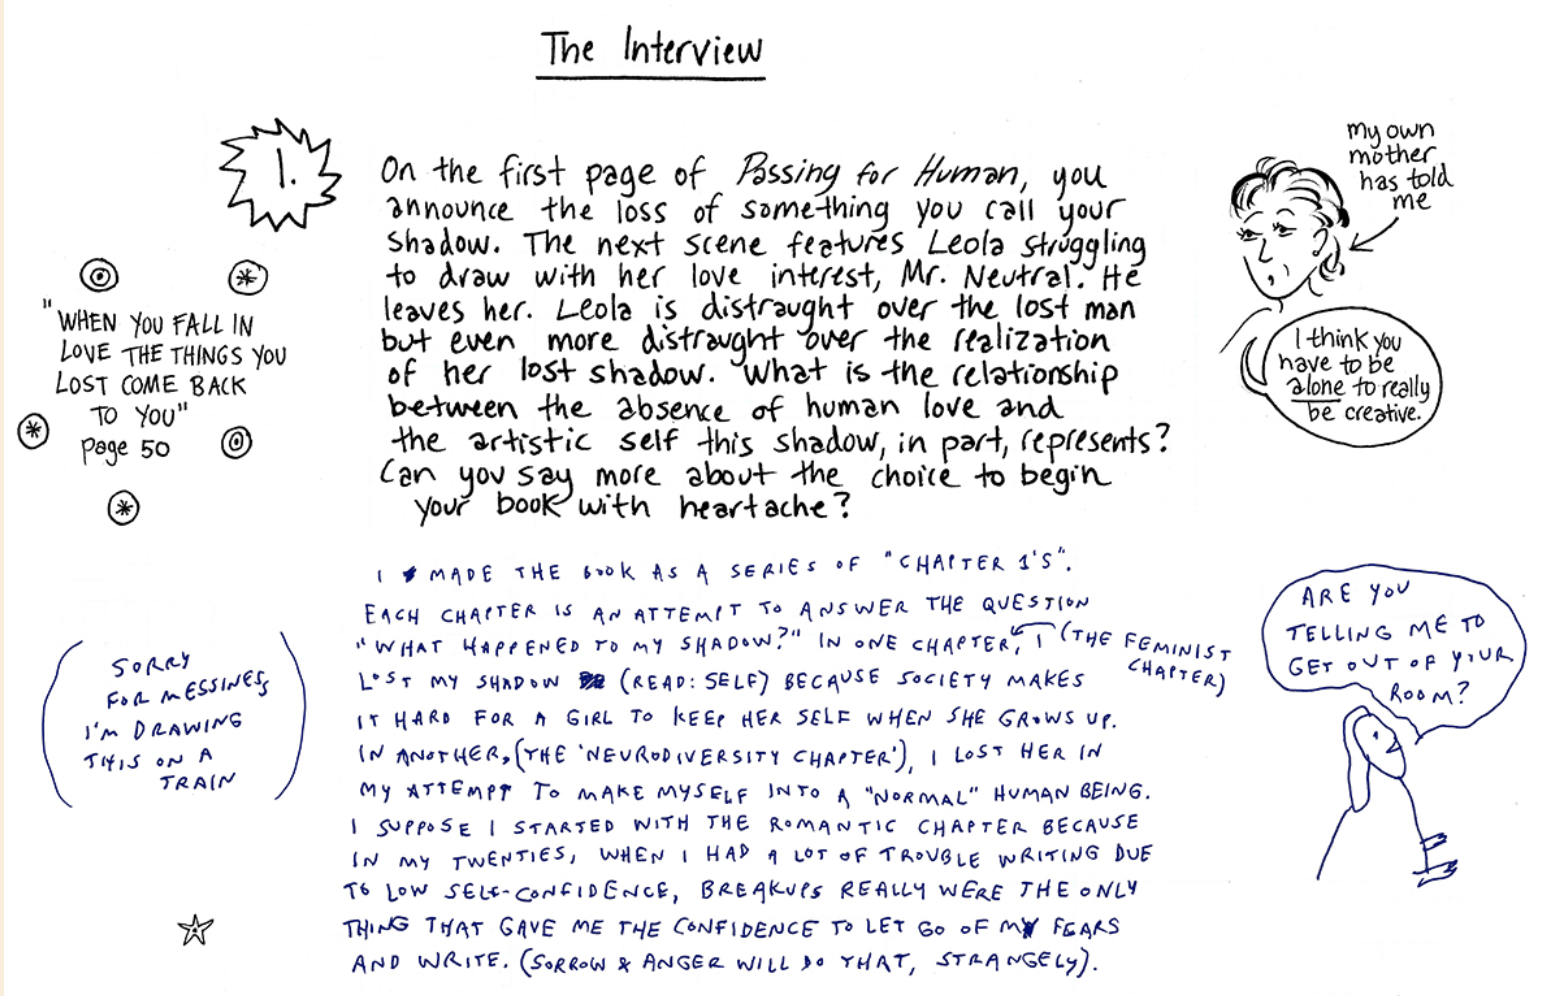 The Interview
1.
On the first page of Passing for Human, you
announce the loss of something you call your
shadow. The next scene features Leola struggling
to draw with her love interest, Mr. Neutral. He
leaves her. Leola is distraught over the lost man
but even more distraught over the realization
of her lost shadow. What is the relationship
between the absence of human love and
the artistic self this shadow, in part, represents?
Can you say more about the choice to begin
your book with heartache?
"WHEN YOU FALL IN
LOVE THE THINGS YOU
LOST COME BACK
TO YOU"
page 50
my own
mother
has told
me
I think you
have to be
alone to really
be creative.
I MADE THE BOOK AS A SERIES OF "CHAPTER 1'S".
EACH CHAPTER IS AN ATTEMPT TO ANSWER THE QUESTION
"WHAT HAPPENED TO MY SHADOW?" IN ONE CHAPTER, I (THE FEMINIST
CHAPTER)
LOST MY SHADOW (READ: SELF) BECAUSE SOCIETY MAKES
IT HARD FOR A GIRL TO KEEP HER SELF WHEN SHE GROWS UP.
IN ANOTHER, (THE 'NEURODIVERSITY CHAPTER'), I LOST HER IN
MY ATTEMPT TO MAKE MYSELF INTO A "NORMAL" HUMAN BEING.
I SUPPOSE I STARTED WITH THE ROMANTIC CHAPTER BECAUSE
IN MY TWENTIES, WHEN I HAD A LOT OF TROUBLE WRITING DUE
TO LOW SELF-CONFIDENCE, BREAKUPS REALLY WERE THE ONLY
THING THAT GAVE ME THE CONFIDENCE TO LET GO OF MY FEARS
AND WRITE. (SORROW & ANGER WILL DO THAT, STRANGELY).
SORRY
FOR MESSINESS
I'M DRAWING
THIS ON A
TRAIN
ARE YOU
TELLING ME TO
GET OUT OF YOUR
ROOM?